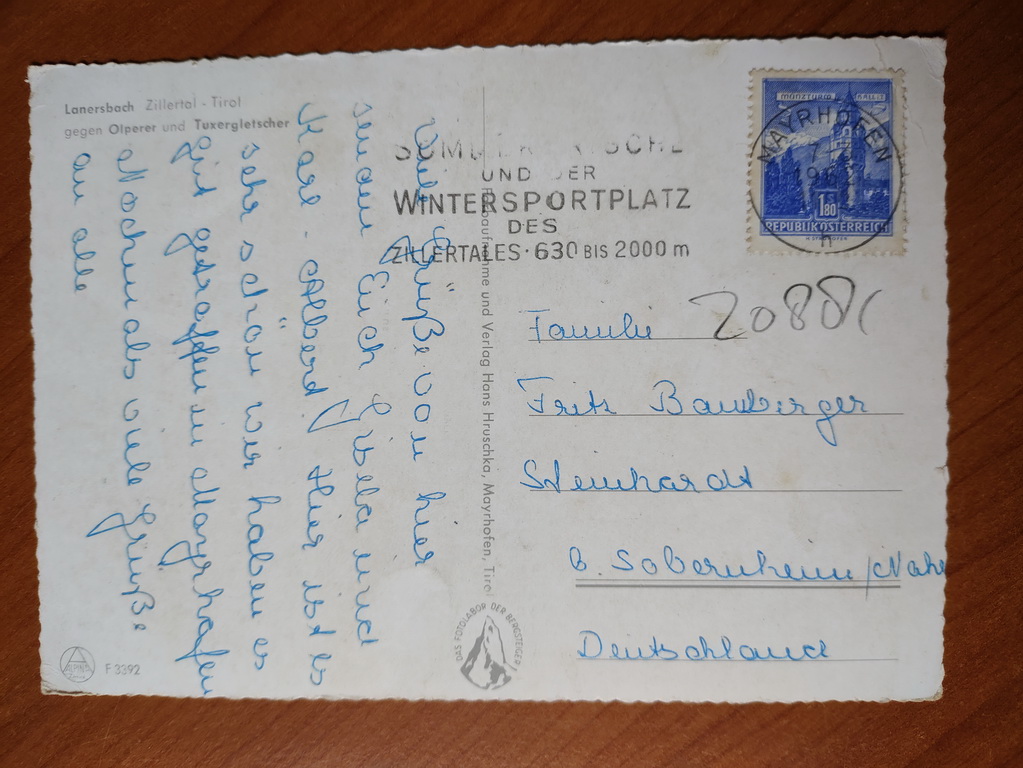 Lanersbach Zillertal - Tirol
gegen Olperer und Tuxergletscher
Viele Grüße von hier
senden Euch Gisela und
Karl-Albert. Hier ist es
sehr schön wir haben es
gut getroffen in Mayrhofen
Nochmals viele Grüße
an alle
UND DER
WINTERSPORTPLATZ
DES
ZILLERTALES · 630 BIS 2000 m
MÜNZTURM HALL i. T.
1.80
REPUBLIK ÖSTERREICH
MAYRHOFEN
Farbaufnahme und Verlag Hans Hruschka, Mayrhofen, Tirol
2088
Familie
Fritz Bamberger
Steinhardt
b. Sobernheim/Nahe
Deutschland
DAS FOTOLABOR DER BERGSTEIGER
ALPINE
F 3392